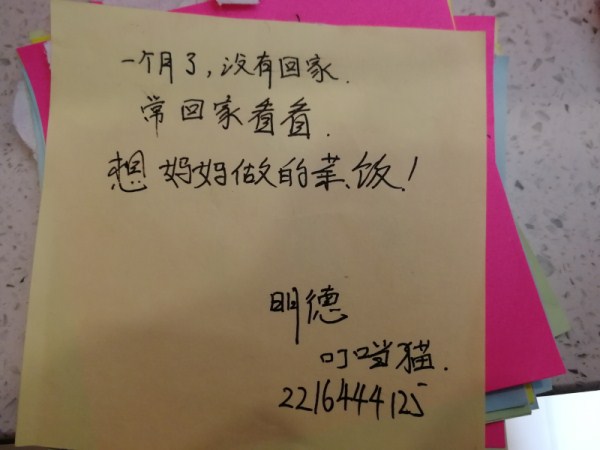 一个月了,没有回家.
常回家看看.
想妈妈做的菜.饭!
明德
叮当猫.
2216444125